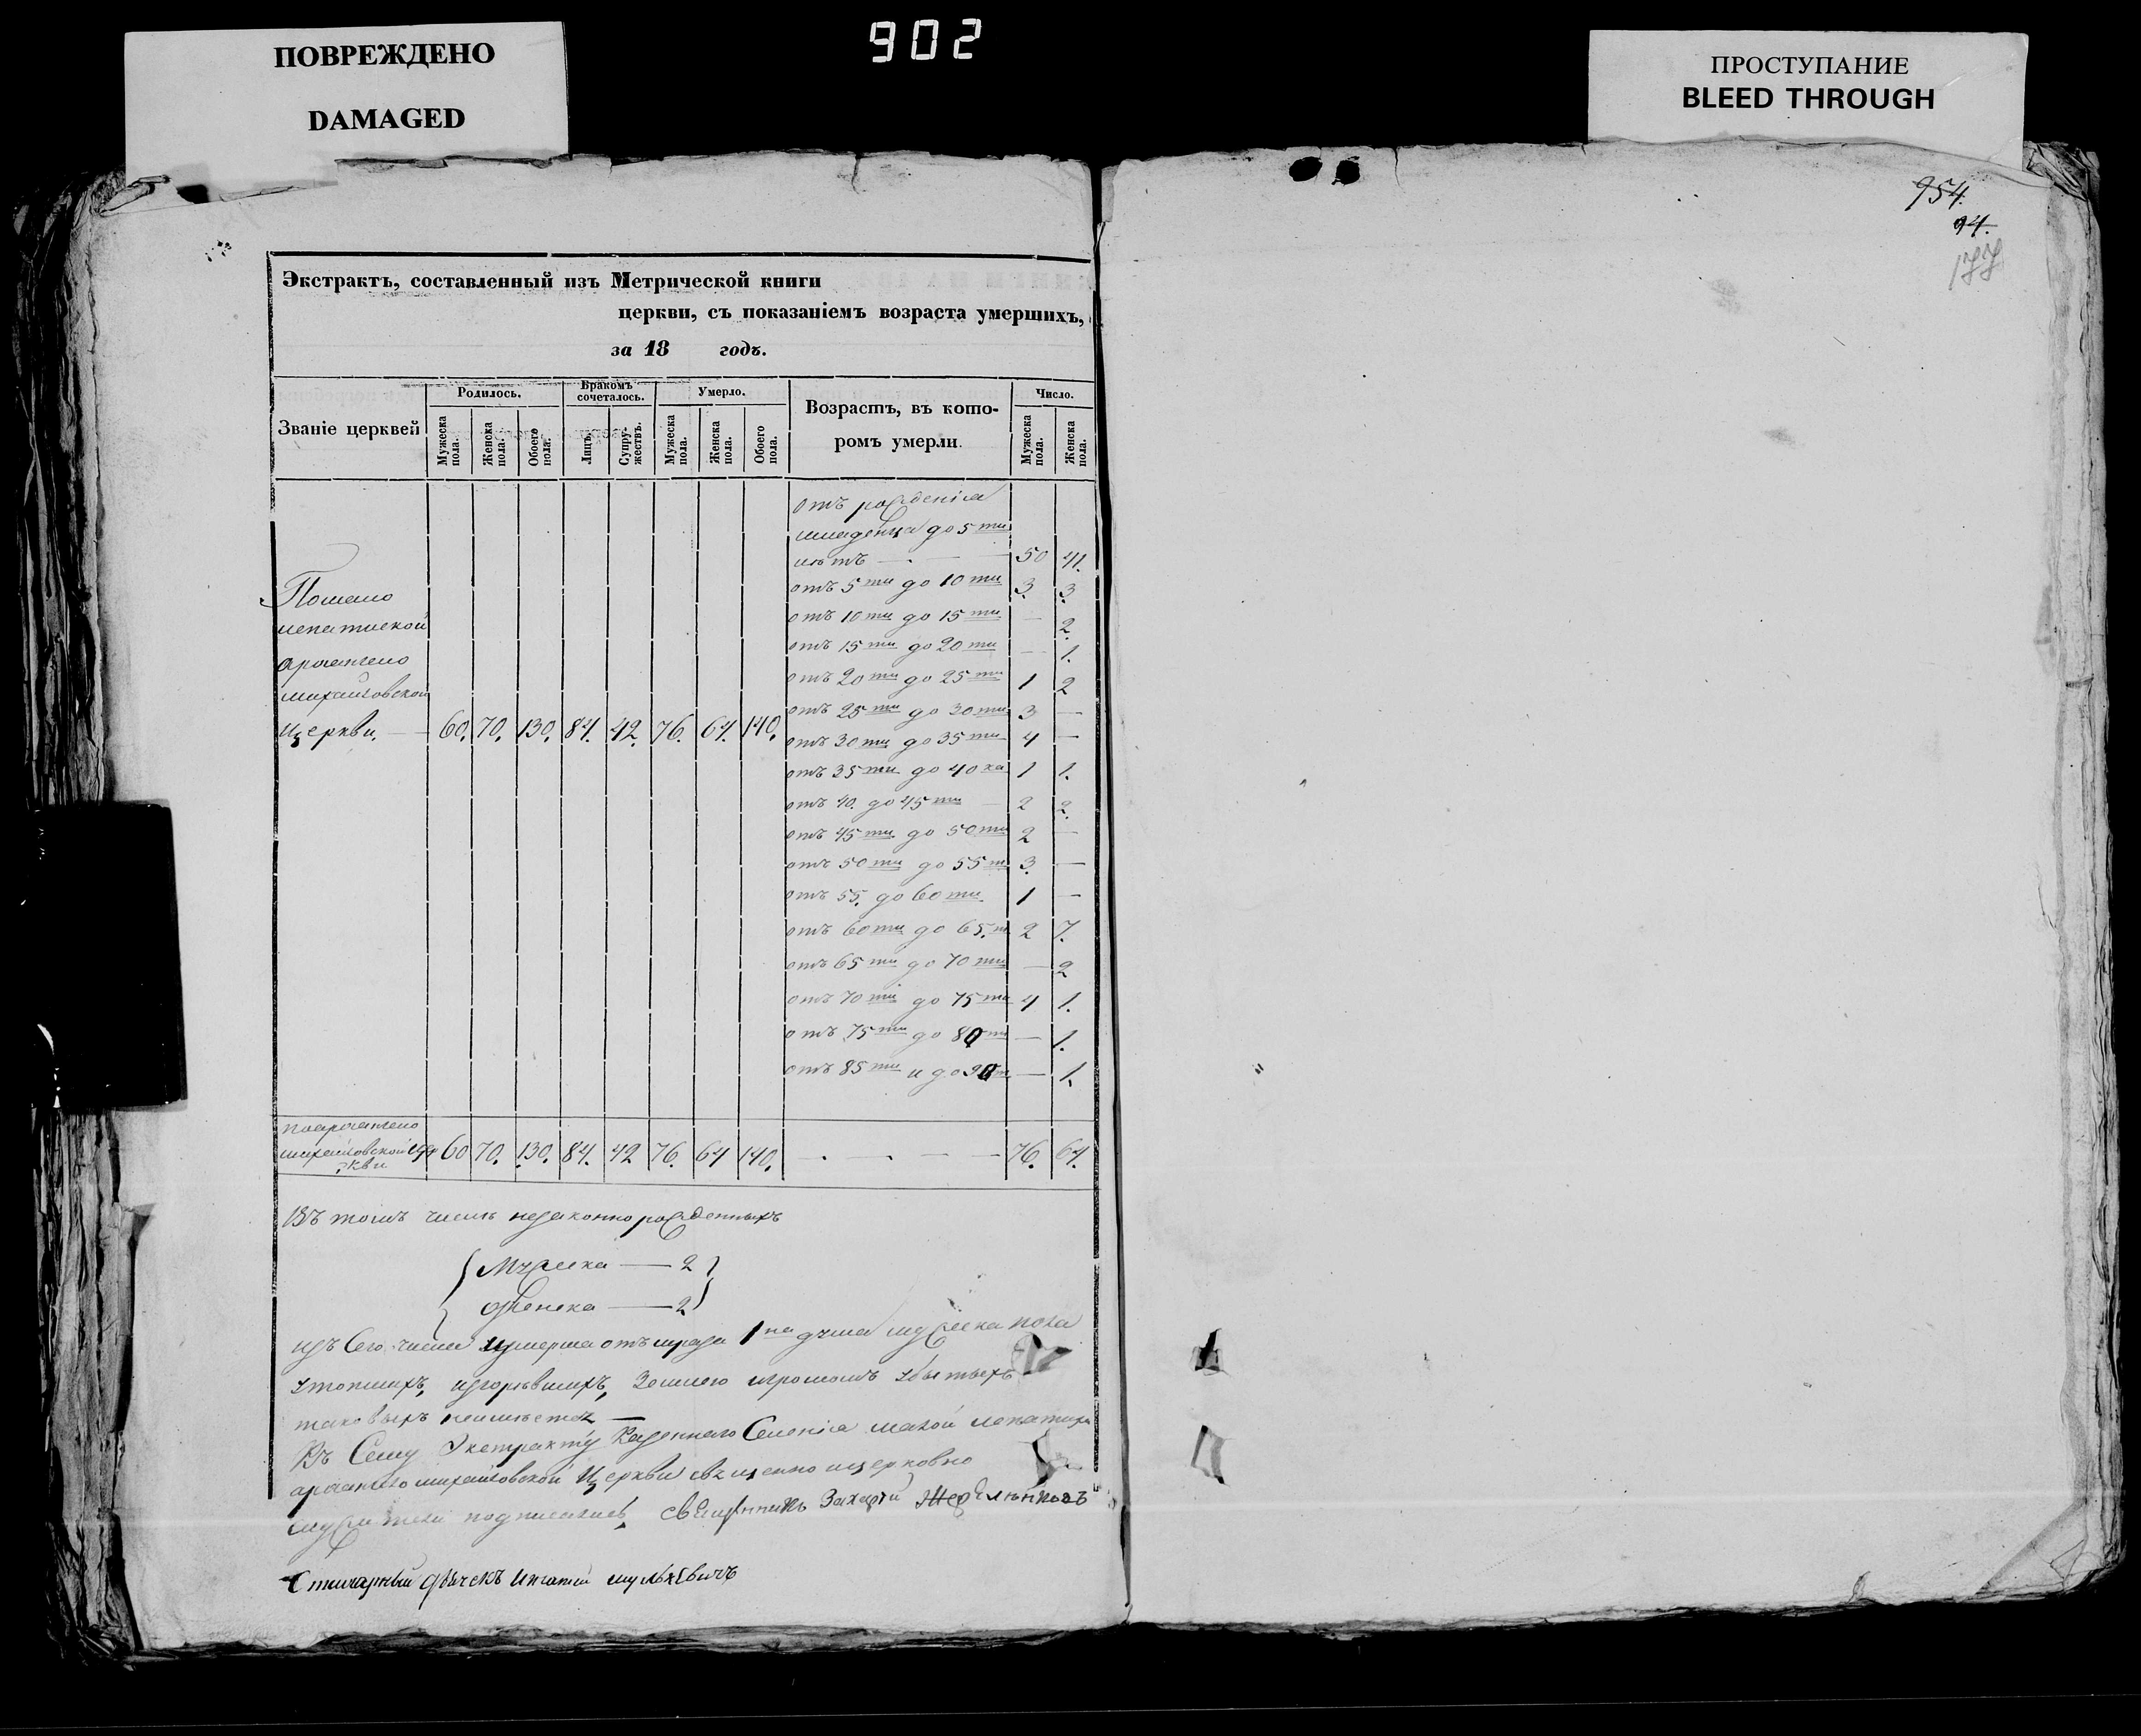 ПОВРЕЖДЕНО
DAMAGED
902
ПРОСТУПАНИЕ
BLEED THROUGH
954.
94.
177
Экстрактъ, составленный изъ Метрической книги
церкви, съ показаніемъ возраста умершихъ,
за 18 годъ.
Званіе церквей
Родилось.
Бракомъ сочеталось.
Умерло.
Возрастъ, въ кото-
ромъ умерли.
Число.
Мужеска пола.
Женска пола.
Обоего пола.
Лицъ.
Супружествъ.
Мужеска пола.
Женска пола.
Обоего пола.
Мужеска пола.
Женска пола.
отъ рожденія
младенца до 5ти
лѣтъ — 50 41.
отъ 5ти до 10ти 3. 3.
отъ 10ти до 15ти — 2.
отъ 15ти до 20ти — 1.
отъ 20ти до 25ти 1 2
отъ 25ти до 30ти 3 —
отъ 30ти до 35ти 4 —
отъ 35ти до 40ка 1 1.
отъ 40. до 45ти — 2 2.
отъ 45ти до 50ти 2 —
отъ 50ти до 55т 3. —
отъ 55. до 60ти. 1 —
отъ 60ти до 65.т 2 7.
отъ 65ти до 70ти — 2
отъ 70ти до 75ти 4 1.
отъ 75ти до 80ти — 1.
отъ 85ти и до 90т — 1.
лепатиской
архангело
михайловской
Церкви. — 60. 70. 130. 84. 42. 76. 64. 140.
поархангело
михайловской цер
кви 60 70. 130. 84. 42 76. 64 140. — — — — 76. 64.
Въ томъ числѣ незаконнорожденныхъ
Мужеска — 2
Женска — 2
изъ Сего числа умерша отъ 1на душа мужеска пола
утопшихъ, изгорѣвшихъ, громомъ убитыхъ
таковыхъ неимѣется —
Къ Сему Экстракту Казеннаго Селенія малой лепатихи
архангеломихайловской Церкви священно ицерковно
служители подписались, священникъ Захарій
Стихарный дьячекъ Игнатій